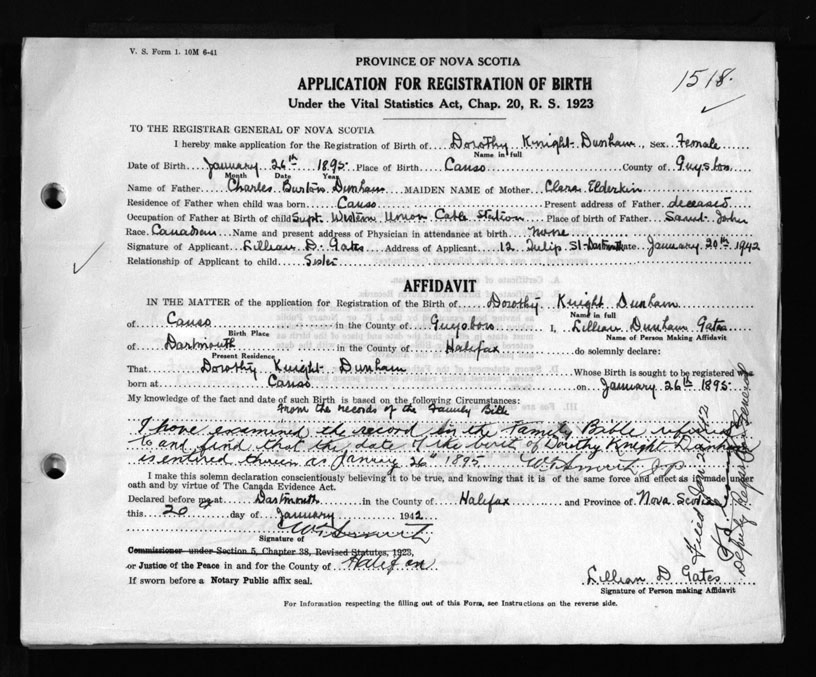 V. S. Form 1. 10M 6-41
PROVINCE OF NOVA SCOTIA
1518.
APPLICATION FOR REGISTRATION OF BIRTH
Under the Vital Statistics Act, Chap. 20, R. S. 1923
TO THE REGISTRAR GENERAL OF NOVA SCOTIA
I hereby make application for the Registration of Birth of Dorothy Knight Dunham, Sex Female
Name in full
Date of Birth January 26th 1895 Place of Birth Canso County of Guysboro
Month Date Year
Name of Father Charles Burton Dunham MAIDEN NAME of Mother Clara Elderkin
Residence of Father when child was born Canso Present address of Father deceased
Occupation of Father at Birth of child Supt. Western Union Cable Station Place of birth of Father Saint John
Race Canadian Name and present address of Physician in attendance at birth none
Signature of Applicant Lillian D. Gates Address of Applicant 12 Tulip St. Dartmouth Date January 20th 1942
Relationship of Applicant to child Sister
AFFIDAVIT
IN THE MATTER of the application for Registration of the Birth of Dorothy Knight Dunham
Name in full
of Canso in the County of Guysboro I, Lillian Dunham Gates
Birth Place Name of Person Making Affidavit
of Dartmouth in the County of Halifax do solemnly declare:
Present Residence
That Dorothy Knight Dunham Whose Birth is sought to be registered was
born at Canso on January 26th 1895
My knowledge of the fact and date of such Birth is based on the following Circumstances:
From the records of the Family Bible
I have examined the record in the Family Bible referred
to and find that the date of the birth of Dorothy Knight Dunham
is entered therein as January 26th 1895
I make this solemn declaration conscientiously believing it to be true, and knowing that it is of the same force and effect as if made under
oath and by virtue of The Canada Evidence Act.
Declared before me at Dartmouth in the County of Halifax and Province of Nova Scotia
this 20 day of January 1942
Signature of
Commissioner under Section 5, Chapter 38, Revised Statutes, 1923,
or Justice of the Peace in and for the County of Halifax
If sworn before a Notary Public affix seal.
Lillian D Gates
Signature of Person making Affidavit
For Information respecting the filling out of this Form, see Instructions on the reverse side.
Deputy Registrar General